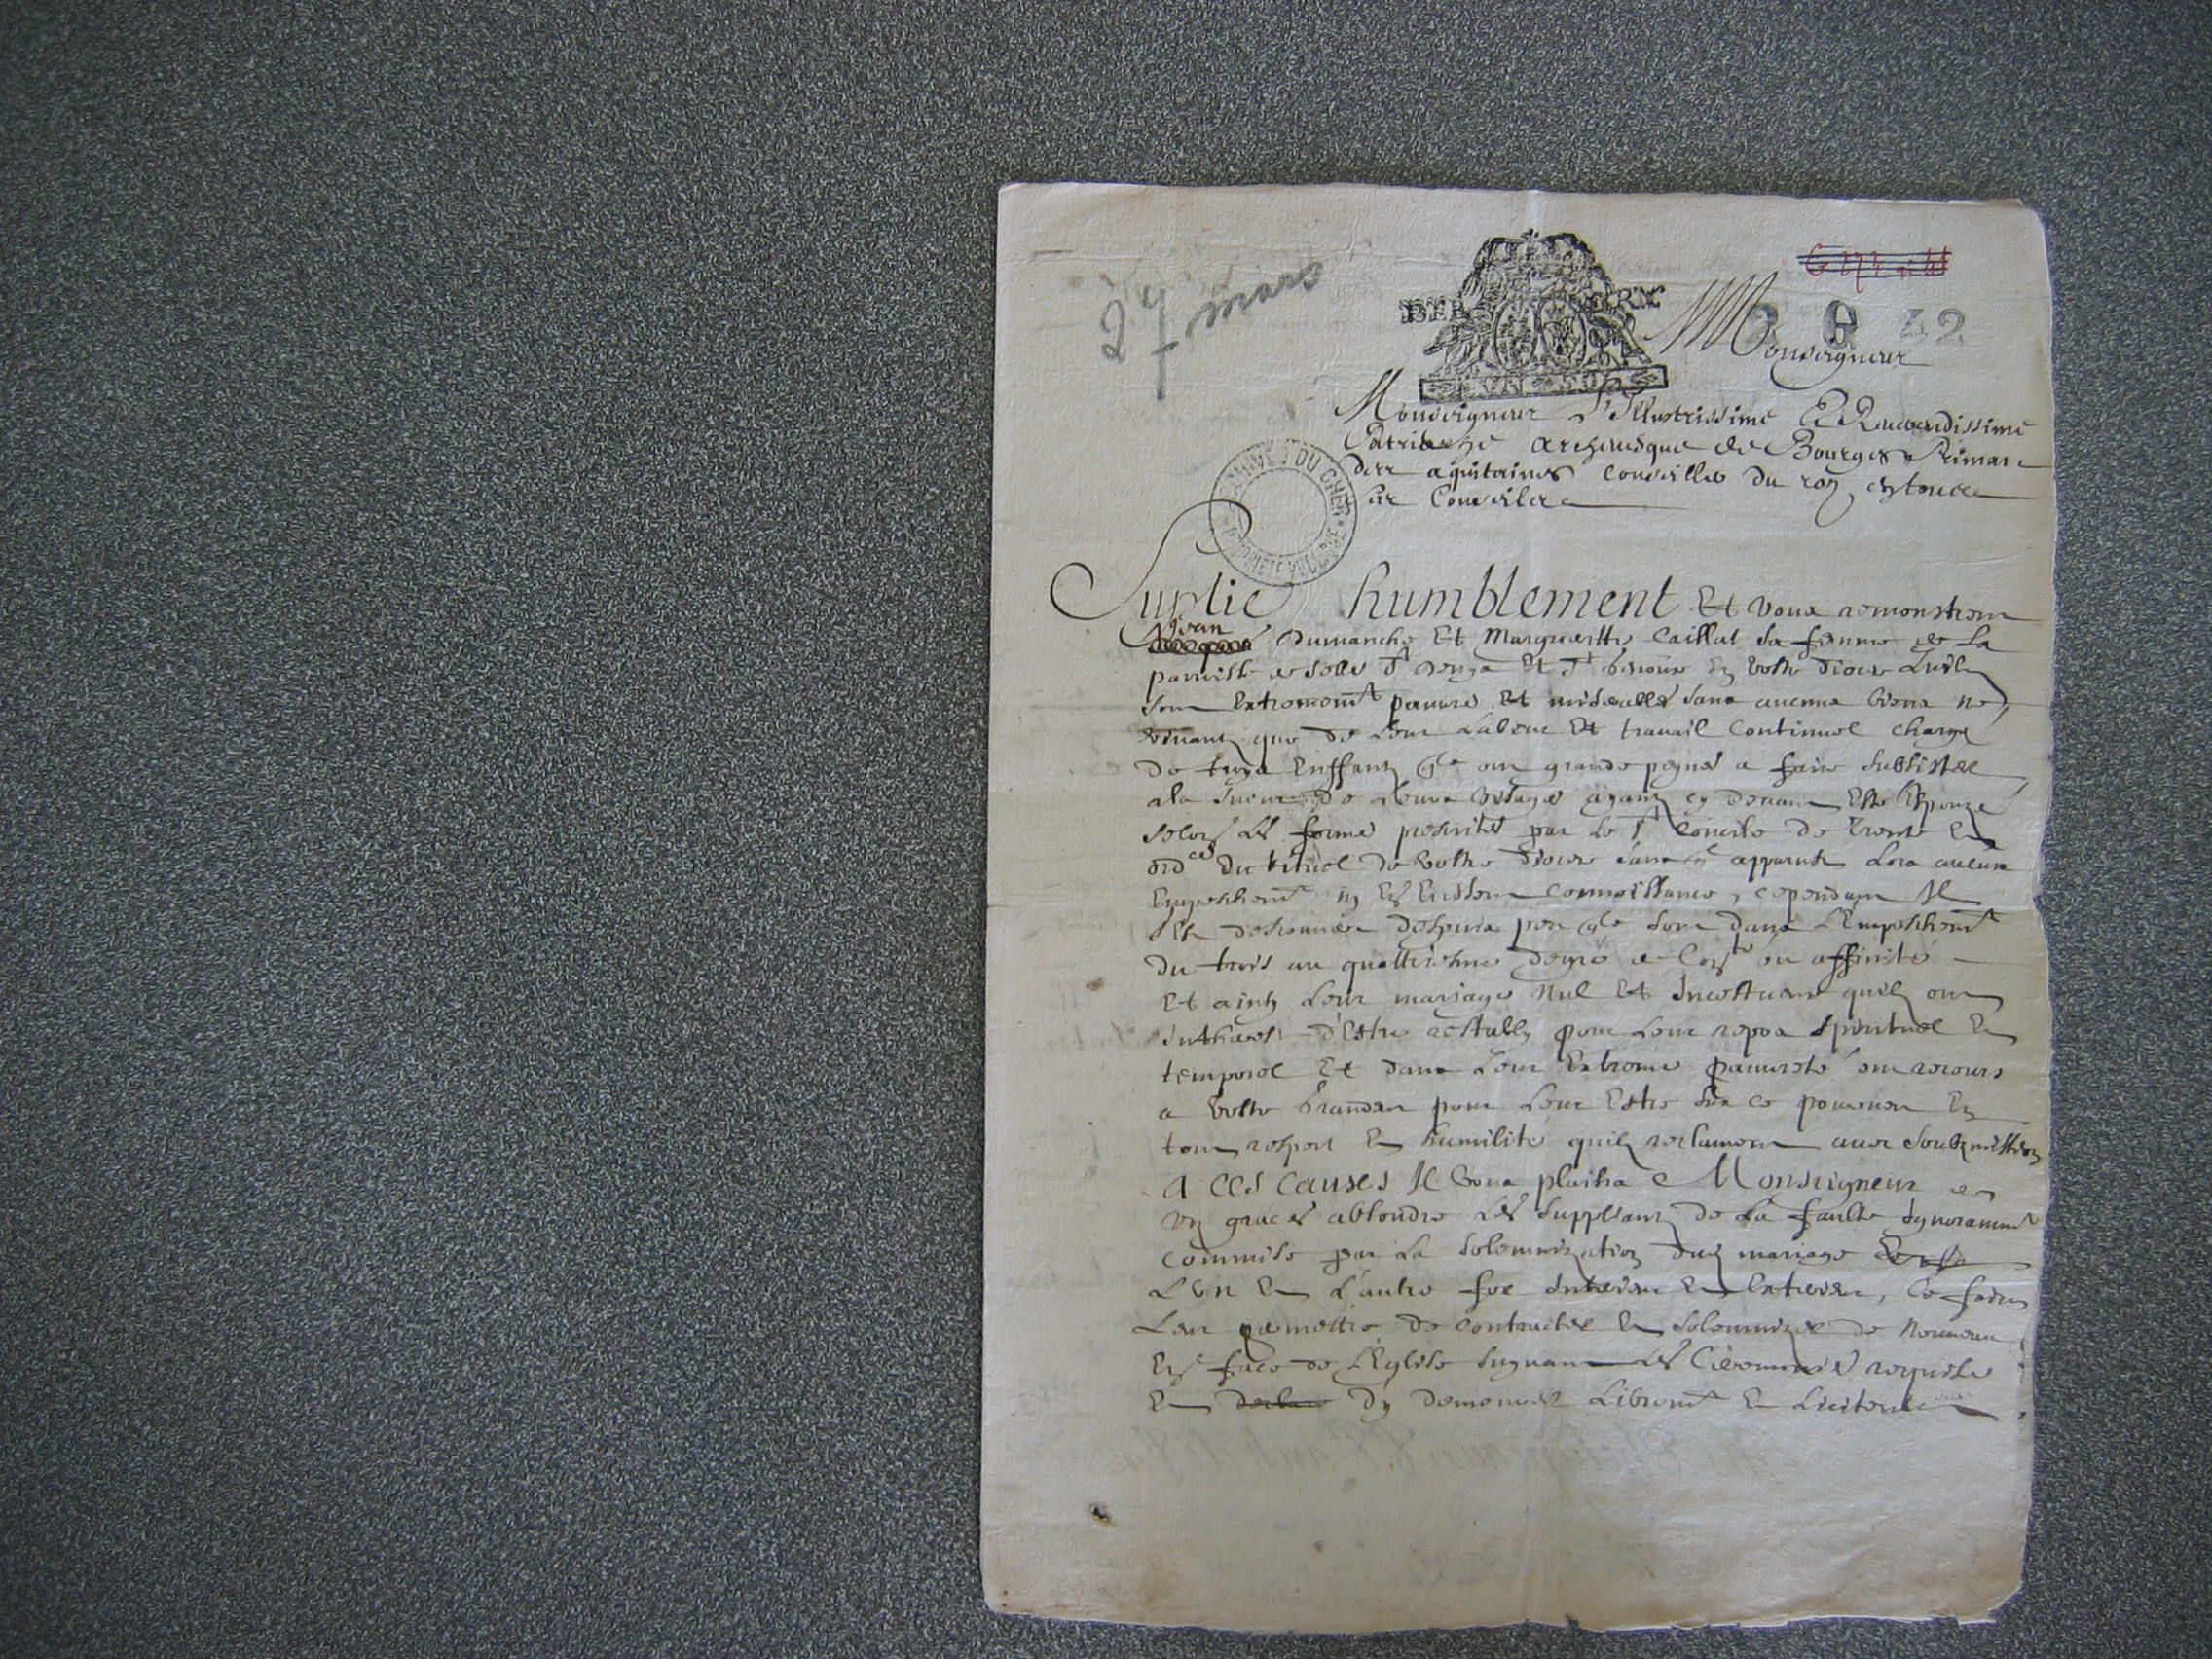 27 mars
BER RY
UN SOL
G 42
Monseigneur
Monseigneur L'Illustrissime Et Reverendissime
Patriarche archevesque de Bourges Primat
des aquitaines conseiller du roy en tous
ses Conseilz
ARCHIVES DU CHER
PROPRIETE PUBLIQUE
Suplie humblement Et vous remonstrent
Jean Dumanche Et Margueritte Caillat sa femme de La
parroisse de Celle St Et St en vostre diocese Quilz
sont Extremement pauvres Et miserables sans aucuns biens ne
vivants que de Leur Labeur Et travail Continuel charges
de trois Enffans qle ont grande peynes a faire subsister
a la sueur de Leurs visages ayants cy devant Esté Espouzé
selon Les formes prescrites par le St Concile de Trente Et
ordces du rituel de vostre diocese sans apparust Lors aucun
Empeschemt ny En Eussent connoissance, cependant Il
sest descouvert despuis peu qle sont dans L'Empeschemt
du trois au quattriesme degré de Consté ou affinité
Et ainsy Leur mariage Nul Et Incestueux quilz ont
intherest d'Estre restably pour Leur repos spirituel Et
temporel Et dans Leur Extreme pauvreté ont recours
a vostre Grandeur pour Leur Estre sur ce pourveu En
tout respect Et humilité quilz reclament avec soubzmission
A CES CAUSES Il vous plaira Monseigneur de
voz graces absoudre Les Supplians de La faulte Ignoramment
commise par La solemnization dud mariage
L'un Et L'autre for Interieur Et Exterieur, Ce faisant
Leur permettre de contracter Et solemnizer de Nouveau
En face de L'Eglise suyvant Les Ceremonies requises
Et d'y demeurer Librement Et Licitement